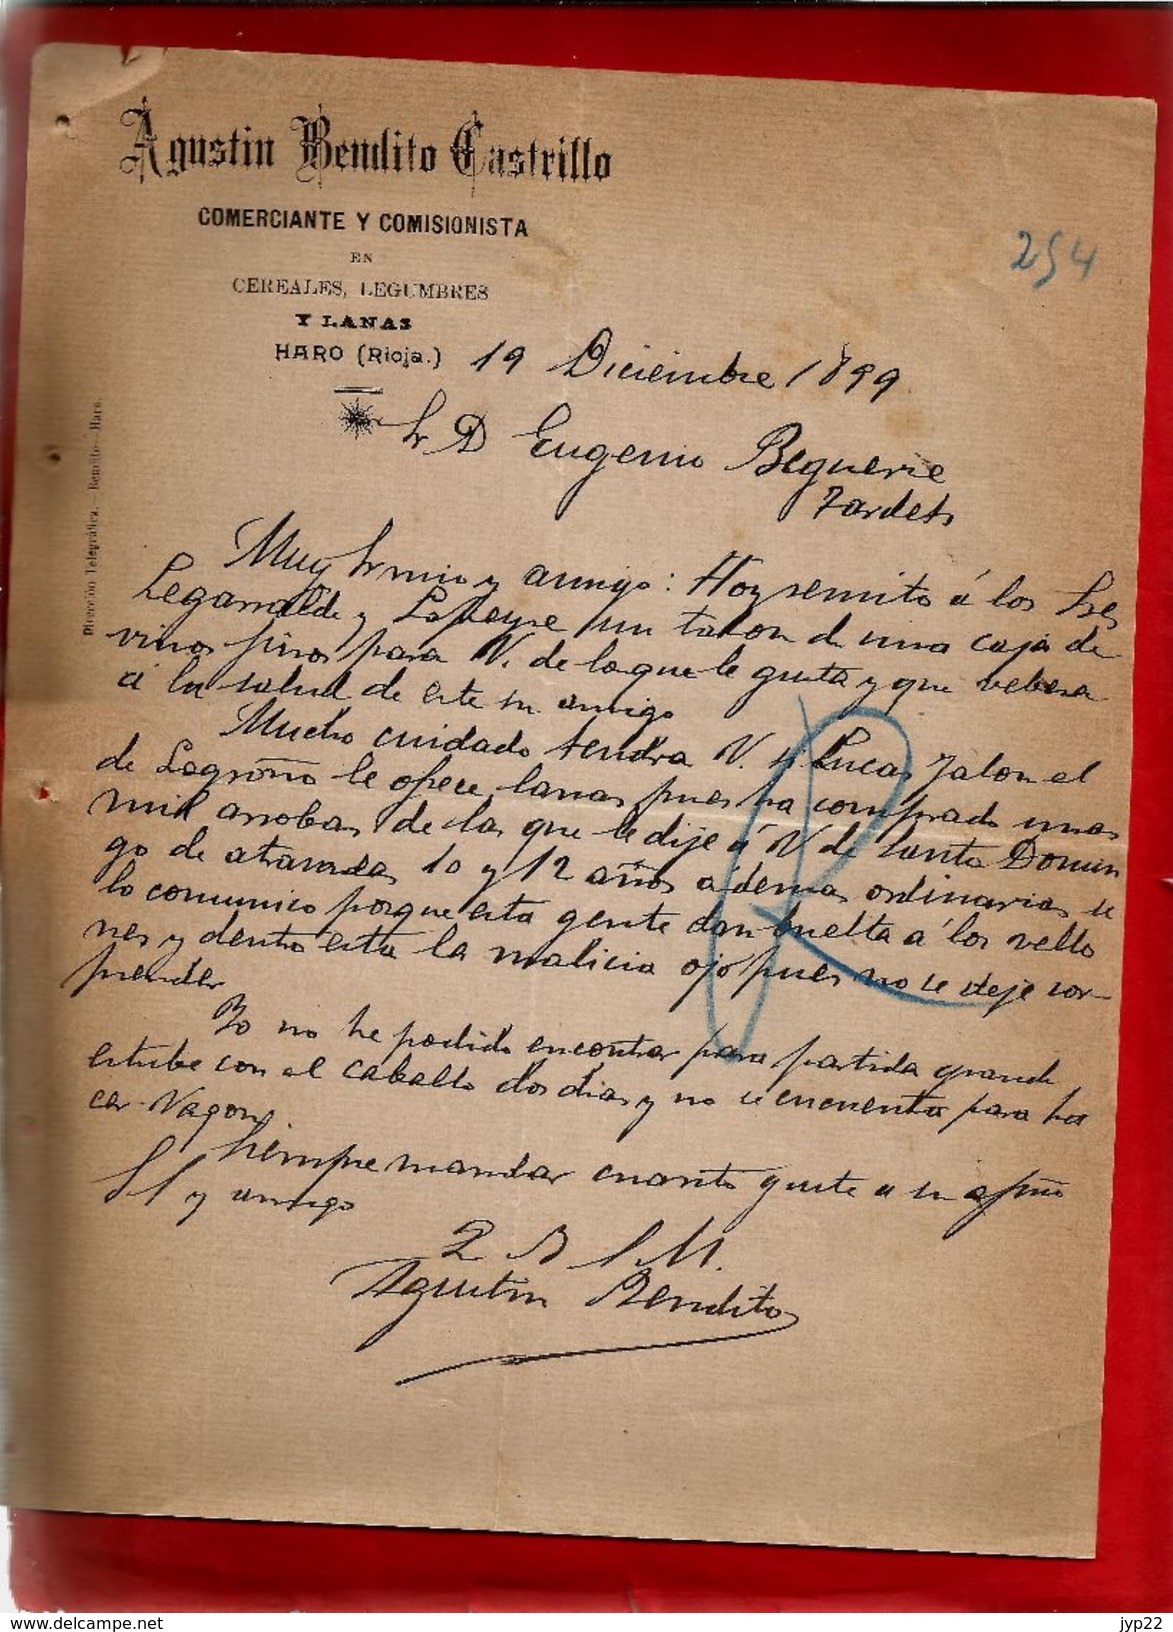 Agustin Bendito Castrillo
COMERCIANTE Y COMISIONISTA
EN
CEREALES, LEGUMBRES
Y LANAS
HARO (Rioja.) 19 Diciembre 1899
254
Sr D Eugenio Beguerie
Tardets
Dirección Telegráfica.—Bendito—Haro.
Muy Sr mio y amigo: Hoy remito á los Sres
Legarralde y Lapeyre un talon de una caja de
vinos finos para V. de la que le gusta y que vebera
á la salud de este su amigo
Mucho cuidado tendra V. si Lucas Jalon el
de Logroño le ofrece lanas pues ha comprado unas
mil arrobas de las que le dije á V de Santo Domin
go de atrasadas 10 y 12 años ademas ordinarias se
lo comunico porque esta gente dan buelta á los vello
nes y dentro esta la malicia ojo pues no se deje sor-
prender
Yo no he podido encontrar para partida grande
estube con el caballo dos dias y no se encuentra para ha
cer Vagon
Siempre mandar cuanto guste a su afmo
S S y amigo
Q B S M.
Agustin Bendito
www.delcampe.net
jyp22